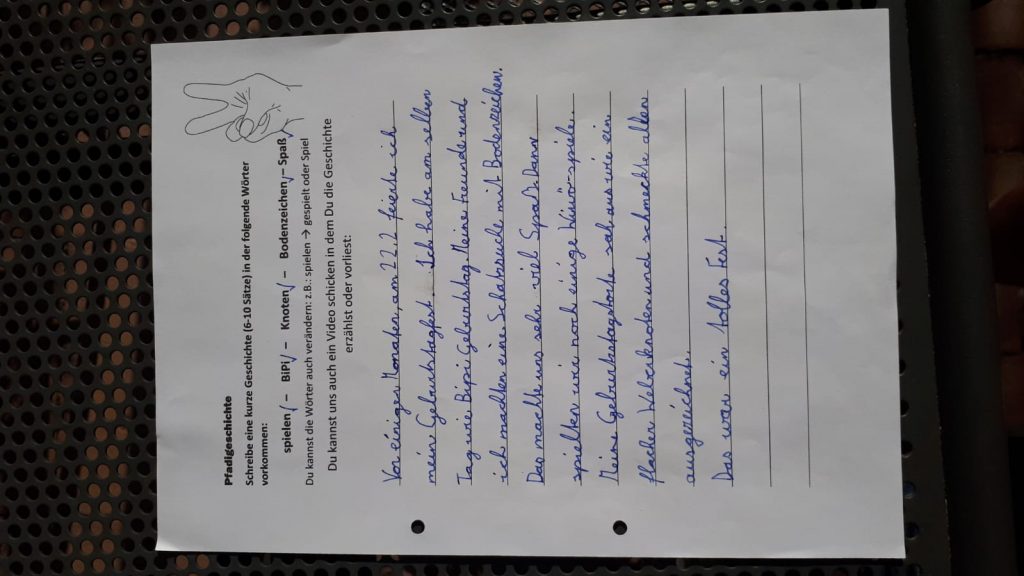 Pfadigeschichte
Schreibe eine kurze Geschichte (6-10 Sätze) in der folgende Wörter
vorkommen:
spielen – BiPi – Knoten – Bodenzeichen – Spaß
Du kannst die Wörter auch verändern: z.B.: spielen → gespielt oder Spiel
Du kannst uns auch ein Video schicken in dem Du die Geschichte
erzählst oder vorliest:
Vor einigen Monaten, am 22.2 feierte ich
mein Geburtstagsfest. Ich habe am selben
Tag wie Bipi Geburtstag. Meine Freunde und
ich machten eine Schatzsuche mit Bodenzeichen.
Das machte uns sehr viel Spaß. Dann
spielten wir noch einige spiele.
Meine Geburtstagstorte sah aus wie ein
flacher Weberknoten und schmeckte allen
ausgezeichnet.
Das war ein tolles Fest.